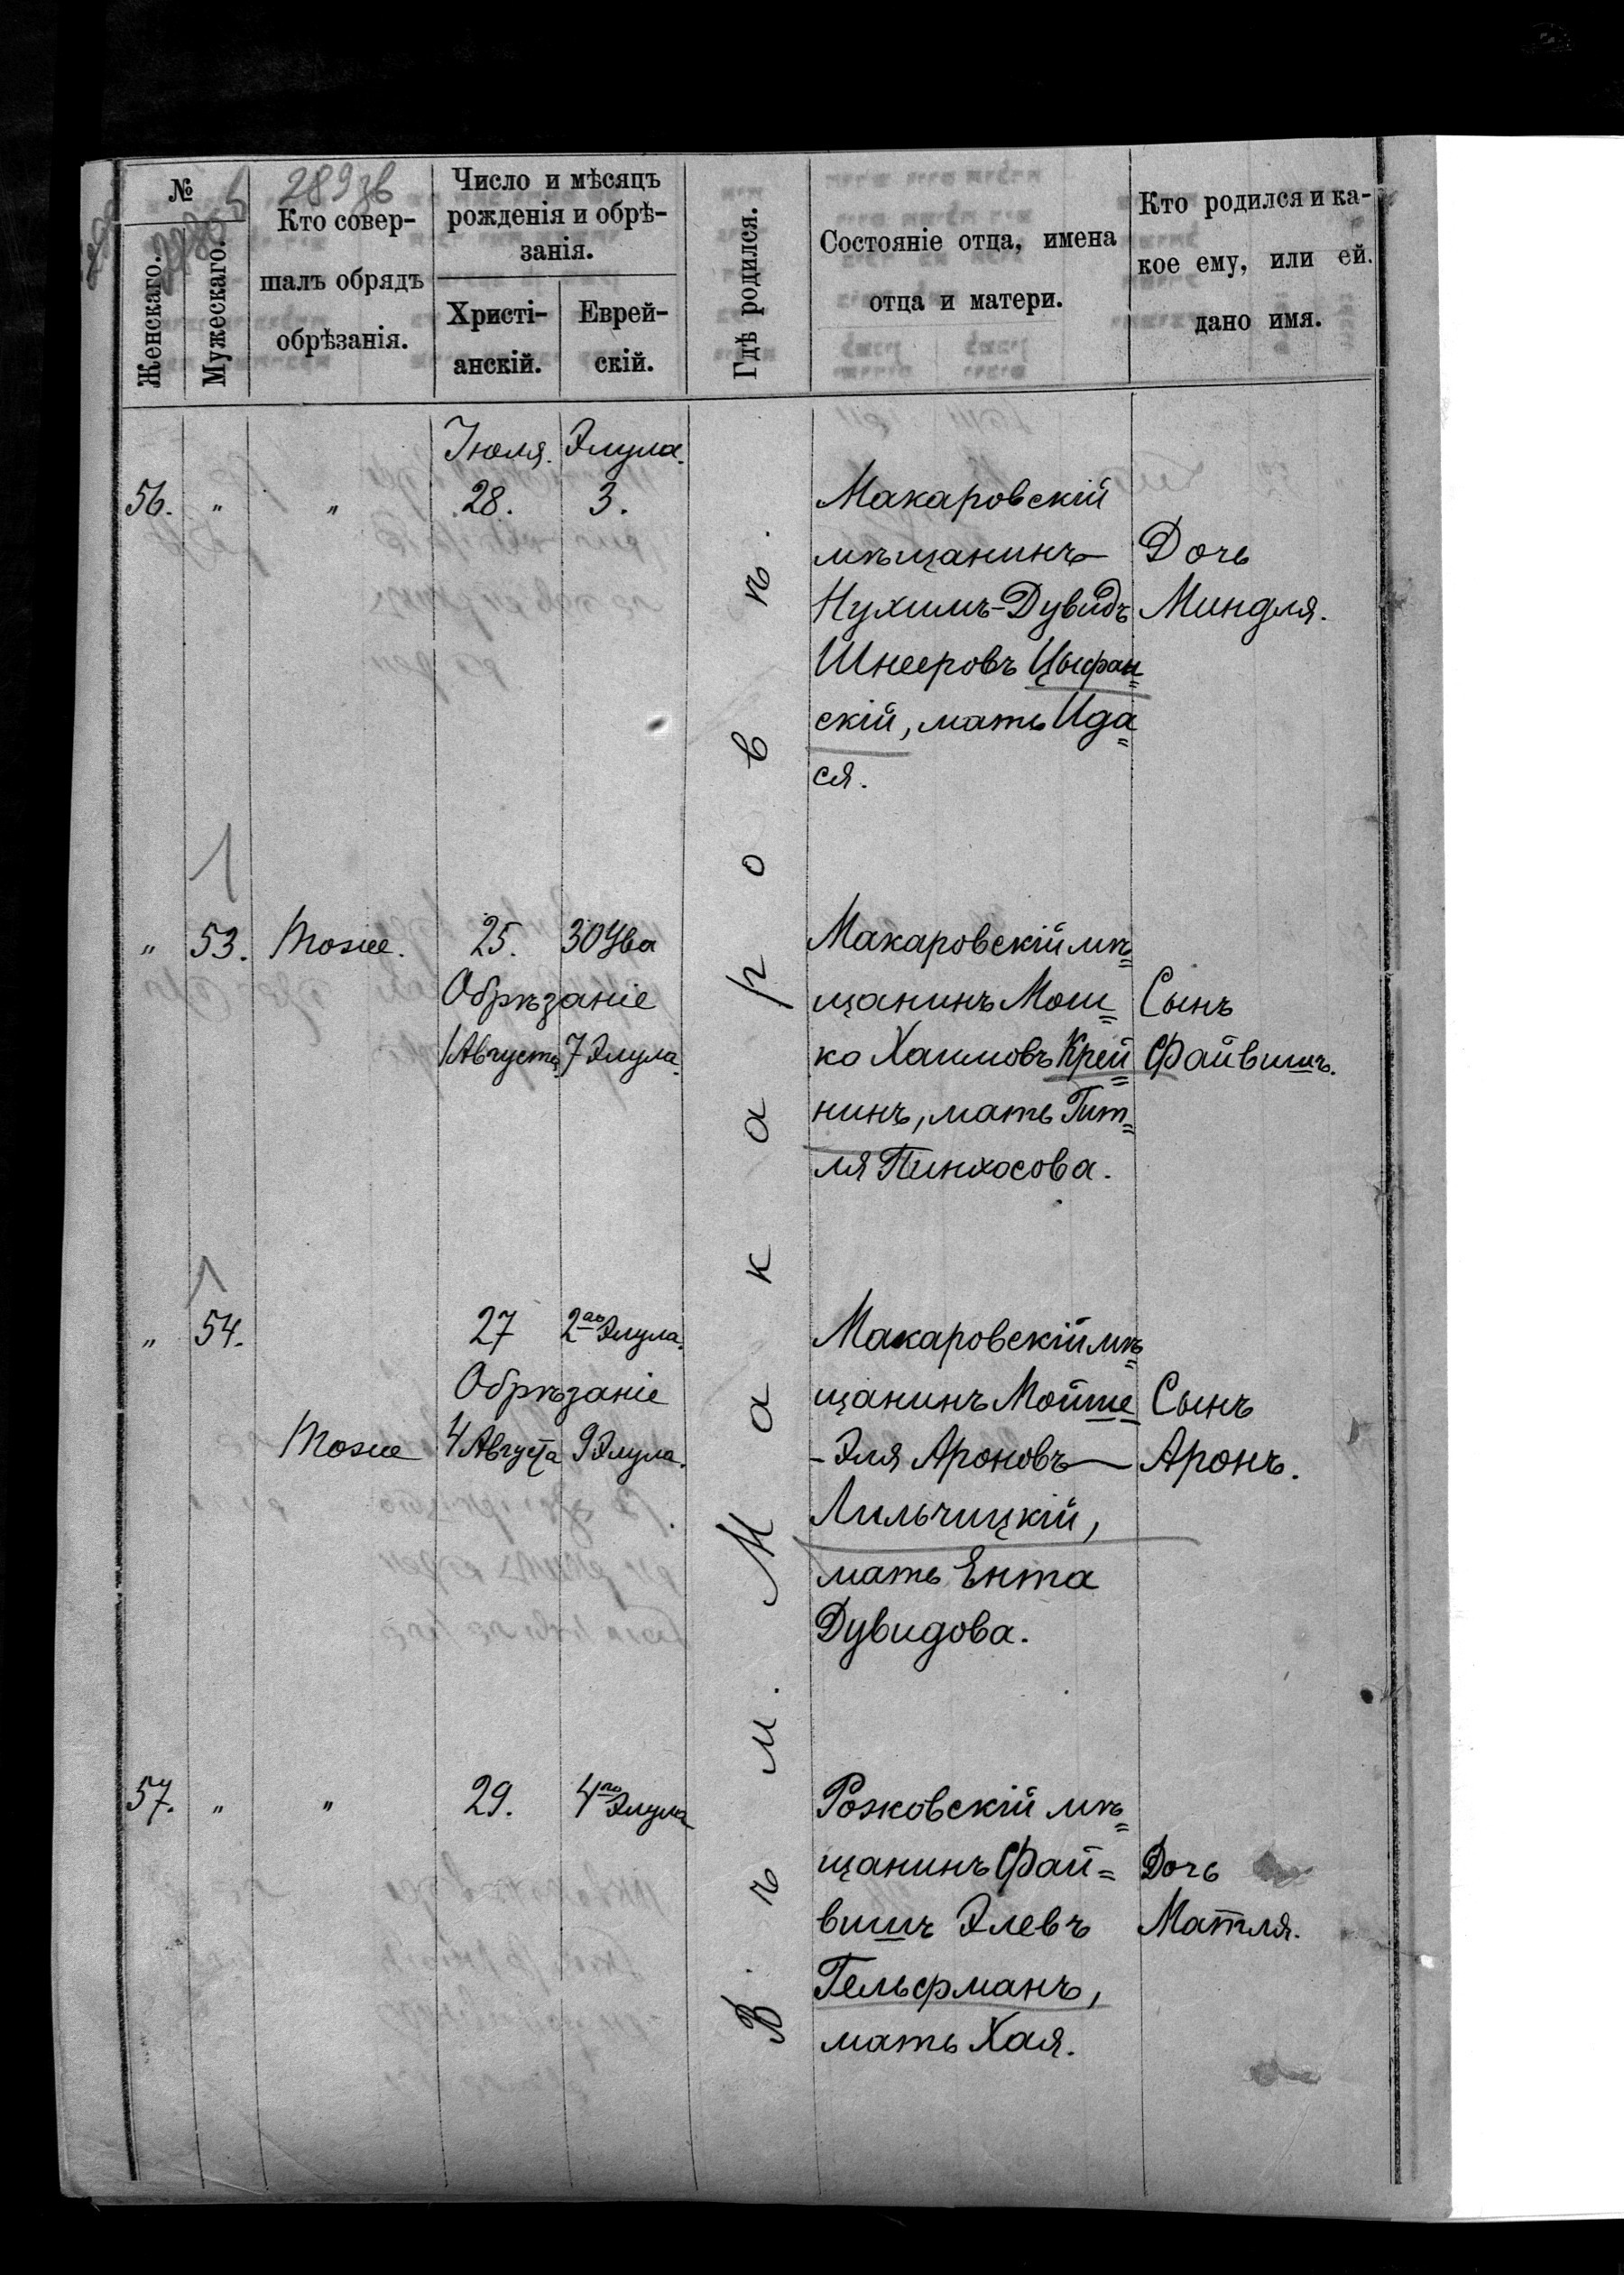 №
289 зв
Женскаго.
Мужескаго.
Кто совер-
шалъ обрядъ
обрѣзанія.
Число и мѣсяцъ
рожденія и обрѣ-
занія.
Христі-
анскій.
Еврей-
скій.
Гдѣ родился.
Состояніе отца, имена
отца и матери.
Кто родился и ка-
кое ему, или ей.
дано имя.
Въ м. Макаровѣ.
Іюля. Элула.
56. " " 28. 3.
Макаровскій
мѣщанинъ
Нухимъ-Дувидъ
Шнееровъ Цыфан=
скій, мать Ида=
ся.
Дочь
Миндля.
" 53. Мозие. 25. 30 Ува
Обрѣзаніе
1 Августа 7 Элула.
Макаровскій мѣ=
щанинъ Мош=
ко Хаимовъ Крей=
нинъ, мать Гит=
ля Пинхосова.
Сынъ
Файвишъ.
" 54. 27 2го Элула.
Обрѣзаніе
Мозие 4 Августа 9 Элула.
Макаровскій мѣ=
щанинъ Мойше=
-Эля Ароновъ
Лильчицкій,
мать Ента
Дувидова.
Сынъ
Аронъ.
57. " " 29. 4го Элула
Рожовскій мѣ=
щанинъ Фай=
вишъ Элевъ
Гельфманъ,
мать Хая.
Дочь
Матля.